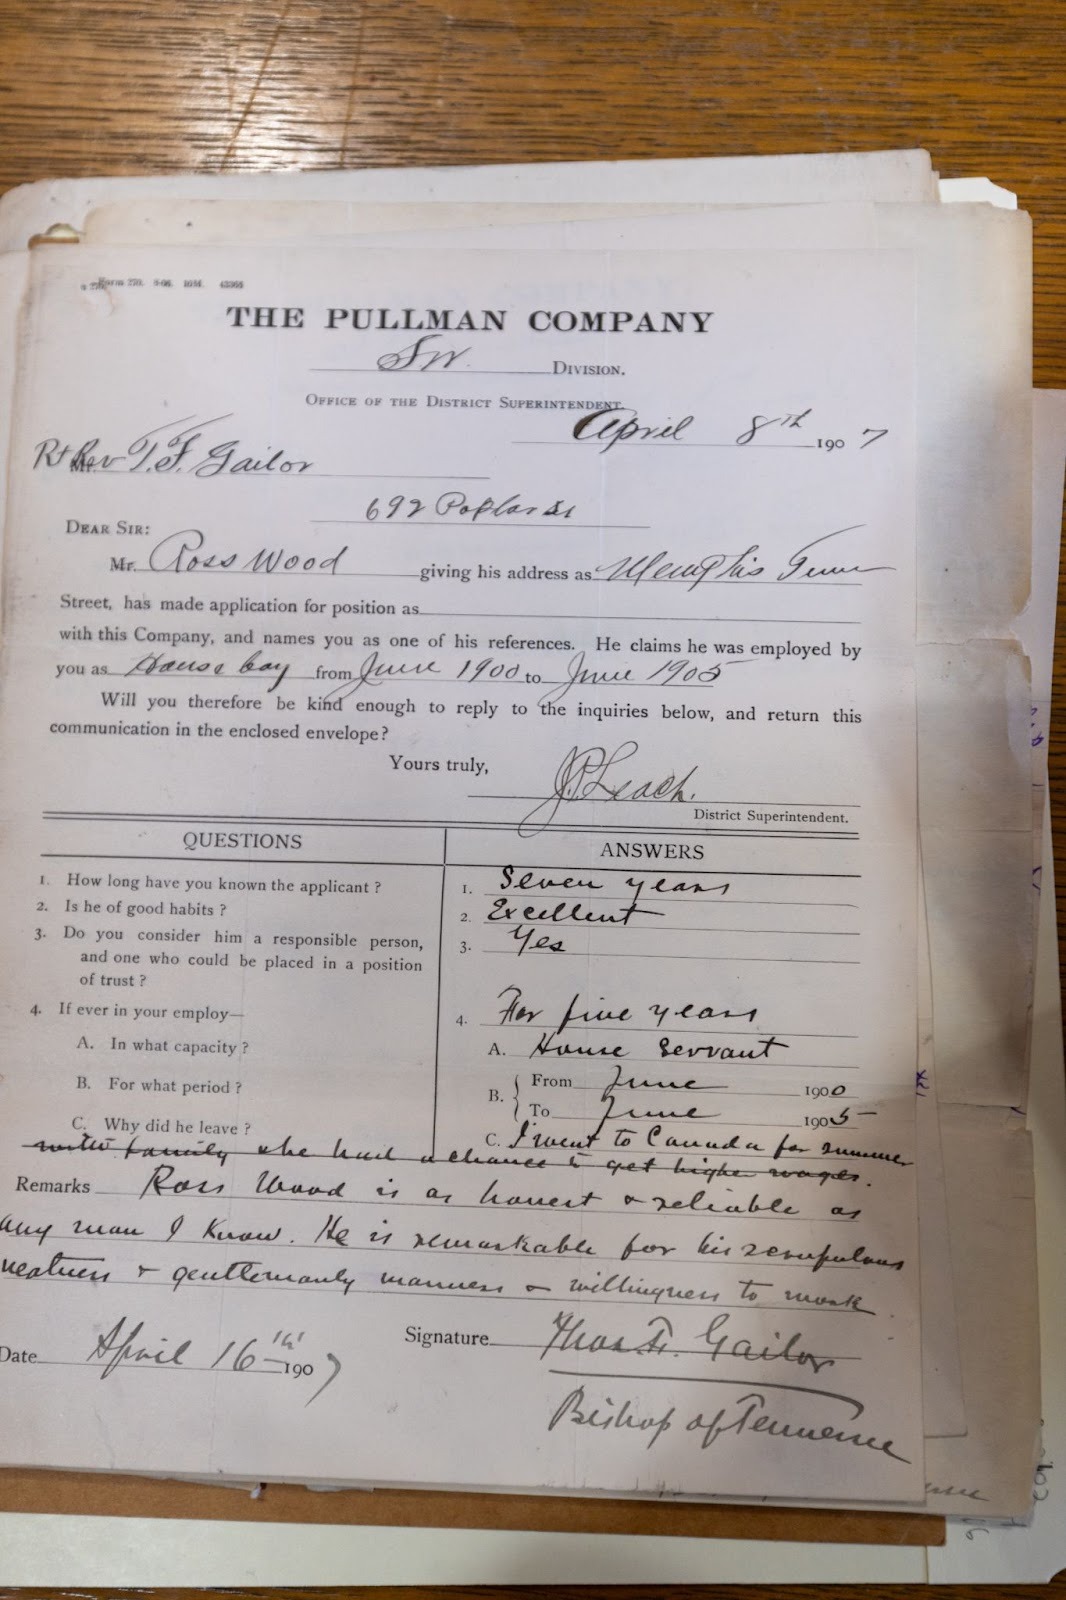 Form 270. 9-06. 10M. 43368
THE PULLMAN COMPANY
SW. DIVISION.
OFFICE OF THE DISTRICT SUPERINTENDENT,
April 8th 1907
Rt Rev T. F. Gailor
692 Poplar St
DEAR SIR:
Mr. Ross Wood giving his address as Memphis Tenn
Street, has made application for position as
with this Company, and names you as one of his references. He claims he was employed by
you as House boy from June 1900 to June 1905
Will you therefore be kind enough to reply to the inquiries below, and return this
communication in the enclosed envelope?
Yours truly,
J.P. Leach.
District Superintendent.
QUESTIONS ANSWERS
1. How long have you known the applicant? 1. Seven years
2. Is he of good habits? 2. Excellent
3. Do you consider him a responsible person, 3. Yes
and one who could be placed in a position
of trust?
4. If ever in your employ— 4. For five years
A. In what capacity? A. House Servant
B. For what period? B. From June 1900
To June 1905
C. Why did he leave? C. I went to Canada for summer
with family & he had a chance to get higher wages.
Remarks Ross Wood is as honest & reliable as
any man I know. He is remarkable for his scrupulous
neatness & gentlemanly manners & willingness to work.
Date April 16th 1907 Signature Thos. F. Gailor
Bishop of Tennessee